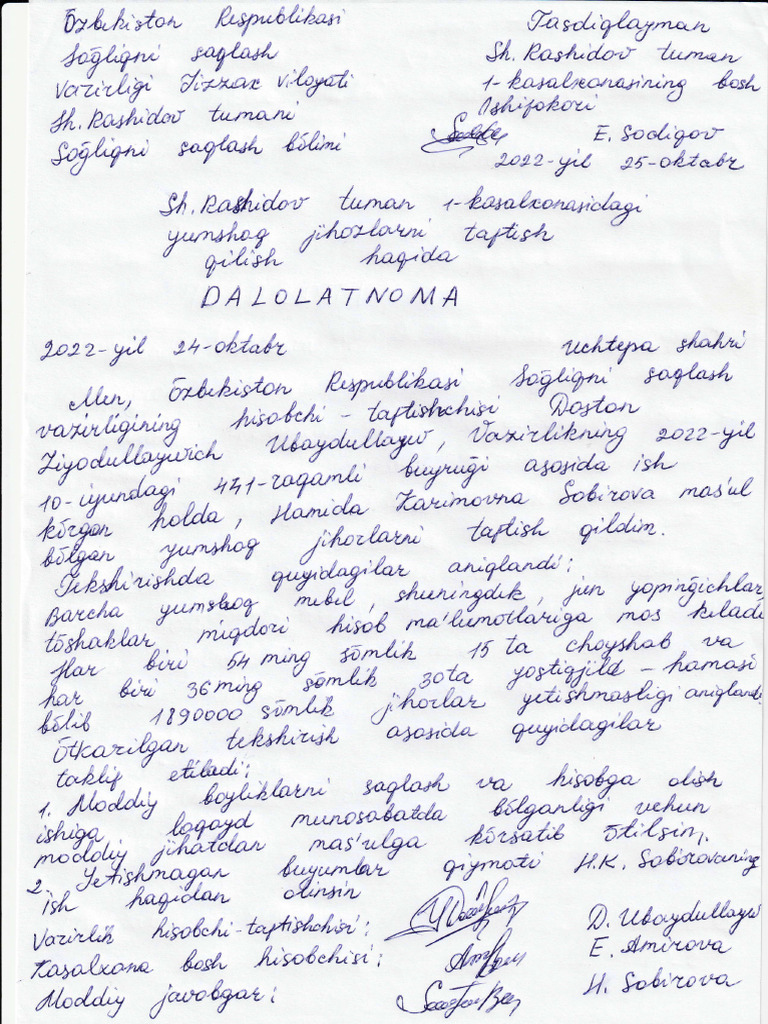 Õzbekiston Respublikasi
Sog̃liqni saqlash
Vazirligi Jizzax viloyati
Sh. Rashidov tumani
Sog̃liqni saqlash bõlimi
Tasdiqlayman
Sh. Rashidov tuman
1-kasalxonasining bosh
Shifokori
E. Sodiqov
2022-yil 25-oktabr
Sh. Rashidov tuman 1-kasalxonasidagi
yumshoq jihozlarni taftish
qilish haqida
DALOLATNOMA
2022-yil 24-oktabr Uchtepa shahri
Men, Õzbekiston Respublikasi Sog̃liqni saqlash
vazirligining hisobchi-taftishchisi Doston
Ziyodullayevich Ubaydullayev, Vazirlikning 2022-yil
10-iyundagi 441-raqamli buyrug̃i asosida ish
kõrgan holda, Hamida Karimovna Sobirova mas'ul
bõlgan yumshoq jihozlarni taftish qildim.
Tekshirishda quyidagilar aniqlandi:
Barcha yumshoq mebel, shuningdek, jun yoping̃ichlar,
tõshaklar miqdori hisob ma'lumotlariga mos keladi
Har biri 54 ming sõmlik 15 ta choyshab va
har biri 36 ming sõmlik 30ta yostiqjild - hamasi
bõlib 1890000 sõmlik jihozlar yetishmasligi aniqlandi.
Õtkazilgan tekshirish asosida quyidagilar
taklif etiladi:
1. Moddiy boyliklarni saqlash va hisobga olish
ishiga loqayd munosabatda bõlganligi uchun
moddiy jihatdan mas'ulga kõrsatib õtilsin.
2 Yetishmagan buyumlar qiymati H.K. Sobirovaning
ish haqidan olinsin
Vazirlik hisobchi-taftishchisi: D. Ubaydullayev
Kasalxona bosh hisobchisi: E. Amirova
Moddiy javobgar: H. Sobirova